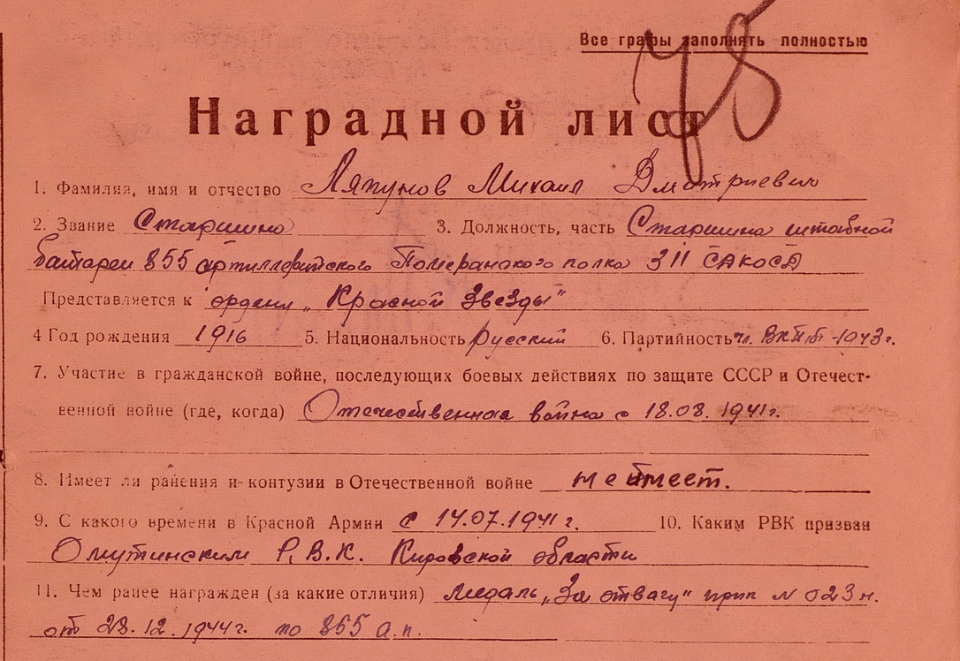 Все графы заполнять полностью
78
Наградной лист
1. Фамилия, имя и отчество Ляпунов Михаил Дмитриевич
2. Звание Старшина 3. Должность, часть Старшина штабной
батареи 855 артиллерийского Померанского полка 311 САКОСД
Представляется к ордену „Красной Звезды"
4 Год рождения 1916 5. Национальность русский 6. Партийность чл. ВКПб -1943 г.
7. Участие в гражданской войне, последующих боевых действиях по защите СССР и Отечест-
венной войне (где, когда) Отечественная война с 18.08.1941г.
8. Имеет ли ранения и контузии в Отечественной войне не имеет.
9. С какого времени в Красной Армии с 14.07.1941 г. 10. Каким РВК призван
Омутинским Р.В.К. Кировской области
11. Чем ранее награжден (за какие отличия) медаль „За отвагу" прик N 023 н.
от 28.12.1944г. по 855 а.п.